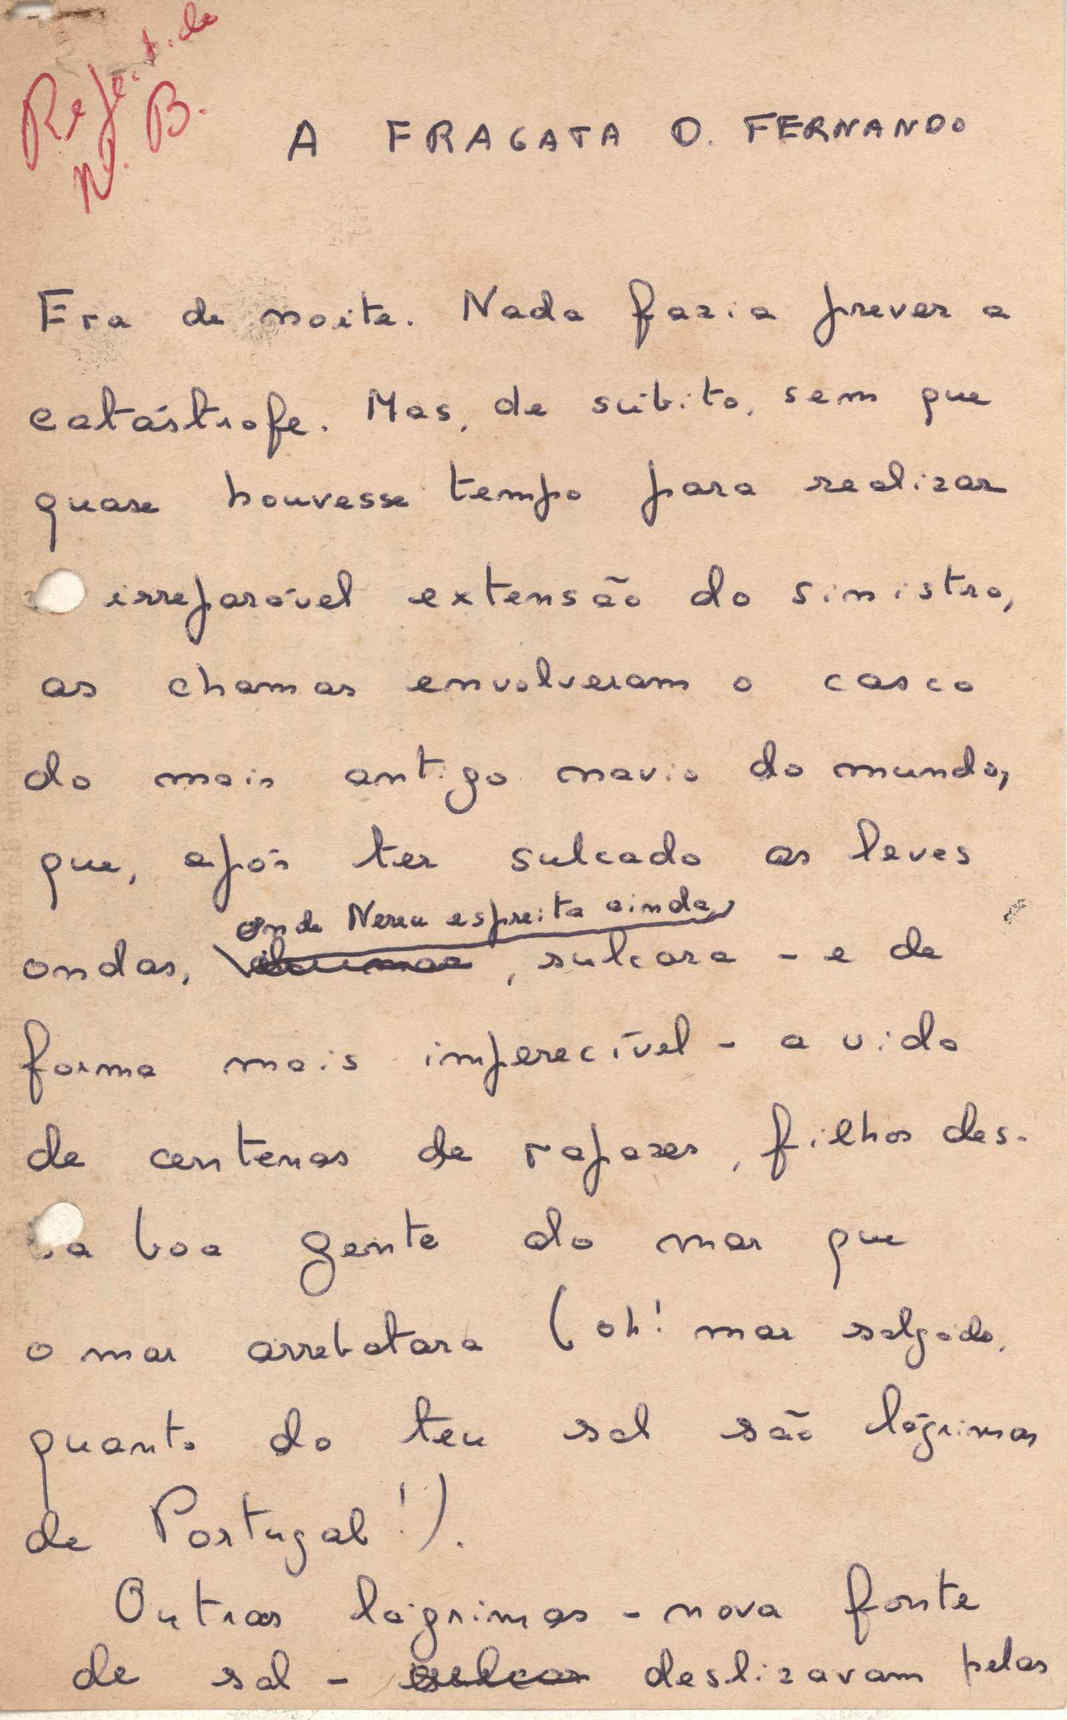 Rejeitado
N. B.
A FRAGATA D. FERNANDO
Era de noite. Nada fazia prever a
catástrofe. Mas, de súbito, sem que
quase houvesse tempo para realizar
irreparável extensão do sinistro,
as chamas envolveram o casco
do mais antigo navio do mundo,
que, após ter sulcado as leves
onde Nereu espreita ainda,
ondas, , sulcara - e de
forma mais imperecível - a vida
de centenas de rapazes, filhos des-
a boa gente do mar que
o mar arrebatara (oh! mar salgado,
quanto do teu sal são lágrimas
de Portugal!).
Outras lágrimas - nova fonte
de sal - sulcar deslizavam pelas